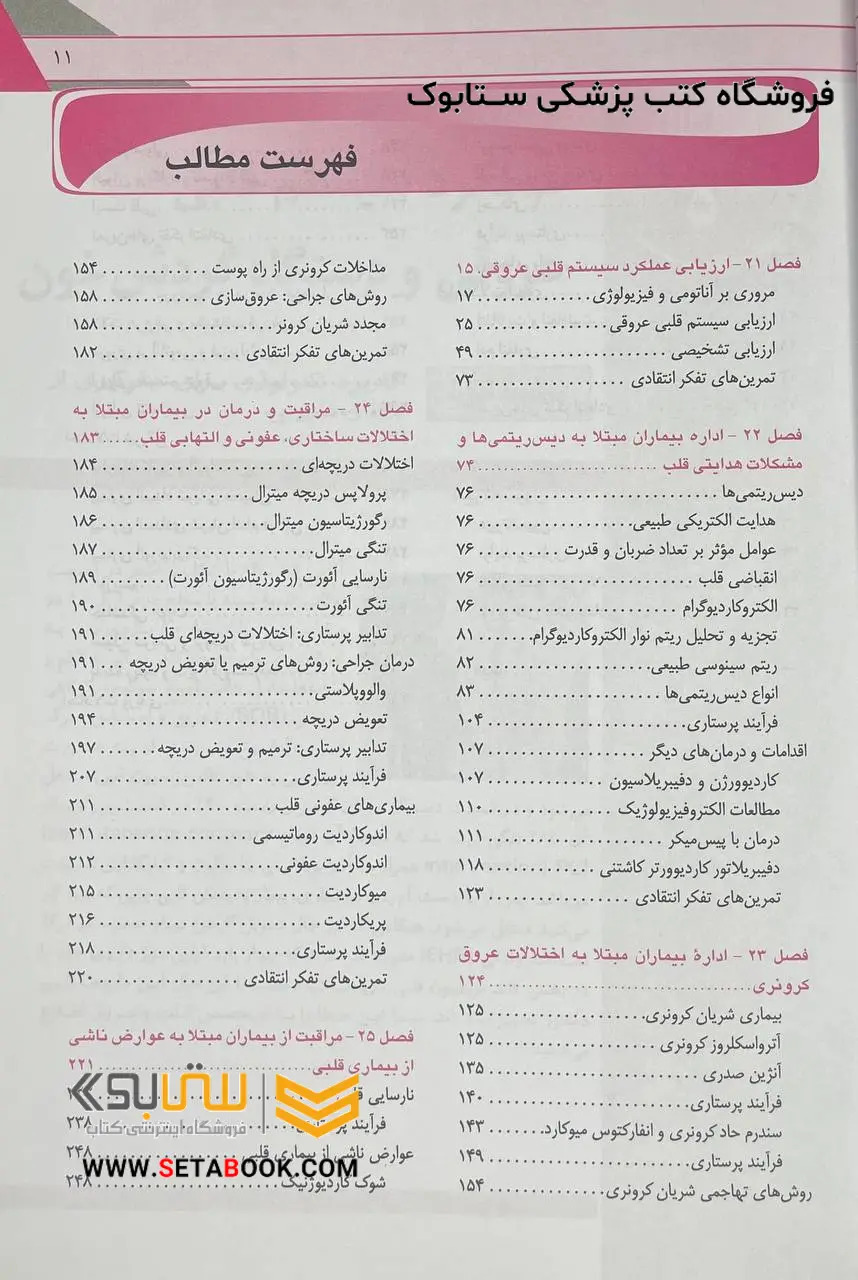 ۱۱
فروشگاه کتب پزشکی ستابوک
فهرست مطالب
فصل ۲۱- ارزیابی عملکرد سیستم قلبی عروقی. ۱۵
مروری بر آناتومی و فیزیولوژی.............. ۱۷
ارزیابی سیستم قلبی عروقی................ ۲۵
ارزیابی تشخیصی ..................... ۴۹
تمرین‌های تفکر انتقادی .................. ۷۳
فصل ۲۲ - اداره بیماران مبتلا به دیس‌ریتمی‌ها و
مشکلات هدایتی قلب ............................ ۷۴
دیس‌ریتمی‌ها ............................. ۷۶
هدایت الکتریکی طبیعی.................. ۷۶
عوامل مؤثر بر تعداد ضربان و قدرت .......... ۷۶
انقباضی قلب ......................... ۷۶
الکتروکاردیوگرام ....................... ۷۶
تجزیه و تحلیل ریتم نوار الکتروکاردیوگرام...... ۸۱
ریتم سینوسی طبیعی.................... ۸۲
انواع دیس‌ریتمی‌ها ..................... ۸۳
فرآیند پرستاری....................... ۱۰۴
اقدامات و درمان‌های دیگر ................. ۱۰۷
کاردیوورژن و دفیبریلاسیون .............. ۱۰۷
مطالعات الکتروفیزیولوژیک ............... ۱۱۰
درمان با پیس‌میکر .................... ۱۱۱
دفیبریلاتور کاردیوورتر کاشتنی ............. ۱۱۸
تمرین‌های تفکر انتقادی ................. ۱۲۳
فصل ۲۳ - ادارهٔ بیماران مبتلا به اختلالات عروق
کرونری......................................... ۱۲۴
بیماری شریان کرونری................... ۱۲۵
آترواسکلروز کرونری .................... ۱۲۵
آنژین صدری ......................... ۱۳۵
فرآیند پرستاری....................... ۱۴۰
سندرم حاد کرونری و انفارکتوس میوکارد...... ۱۴۳
فرآیند پرستاری....................... ۱۴۹
روش‌های تهاجمی شریان کرونری............. ۱۵۴
مداخلات کرونری از راه پوست ............. ۱۵۴
روش‌های جراحی: عروق‌سازی ............. ۱۵۸
مجدد شریان کرونر..................... ۱۵۸
تمرین‌های تفکر انتقادی ................. ۱۸۲
فصل ۲۴ - مراقبت و درمان در بیماران مبتلا به
اختلالات ساختاری، عفونی و التهابی قلب...... ۱۸۳
اختلالات دریچه‌ای ....................... ۱۸۴
پرولاپس دریچه میترال.................. ۱۸۵
رگورژیتاسیون میترال................... ۱۸۶
تنگی میترال......................... ۱۸۷
نارسایی آئورت (رگورژیتاسیون آئورت) ....... ۱۸۹
تنگی آئورت.......................... ۱۹۰
تدابیر پرستاری: اختلالات دریچه‌ای قلب...... ۱۹۱
درمان جراحی: روش‌های ترمیم یا تعویض دریچه ... ۱۹۱
والووپلاستی.......................... ۱۹۱
تعویض دریچه ........................ ۱۹۴
تدابیر پرستاری: ترمیم و تعویض دریچه....... ۱۹۷
فرآیند پرستاری....................... ۲۰۷
بیماری‌های عفونی قلب .................... ۲۱۱
اندوکاردیت روماتیسمی ................. ۲۱۱
اندوکاردیت عفونی..................... ۲۱۲
میوکاردیت .......................... ۲۱۵
پریکاردیت .......................... ۲۱۶
فرآیند پرستاری....................... ۲۱۸
تمرین‌های تفکر انتقادی ................. ۲۲۰
فصل ۲۵ - مراقبت از بیماران مبتلا به عوارض ناشی
از بیماری قلبی ............................... ۲۲۱
نارسایی
فرآیند ۲۳۸
عوارض ناشی از بیماری قلبی ۲۴۸
شوک کاردیوژنیک................... ۲۴۸
ستابوک
فروشگاه اینترنتی کتاب
WWW.SETABOOK.COM